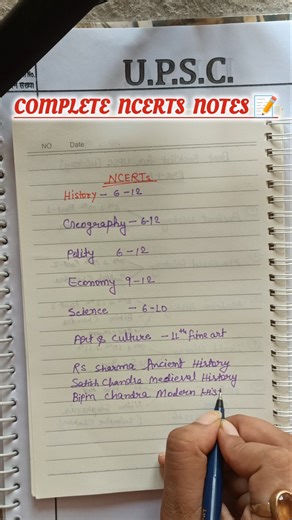 U.P.S.C.
COMPLETE NCERTS NOTES 📝
NO
Date
NCERTs
History - 6-12
Creography - 6-12
Polity 6-12
Economy 9-12
Science - 6-10
Art & Culture - 11th fine art
RS Sharma Ancient History
Satish Chandra Medieval History
Bipin Chandra Modern His